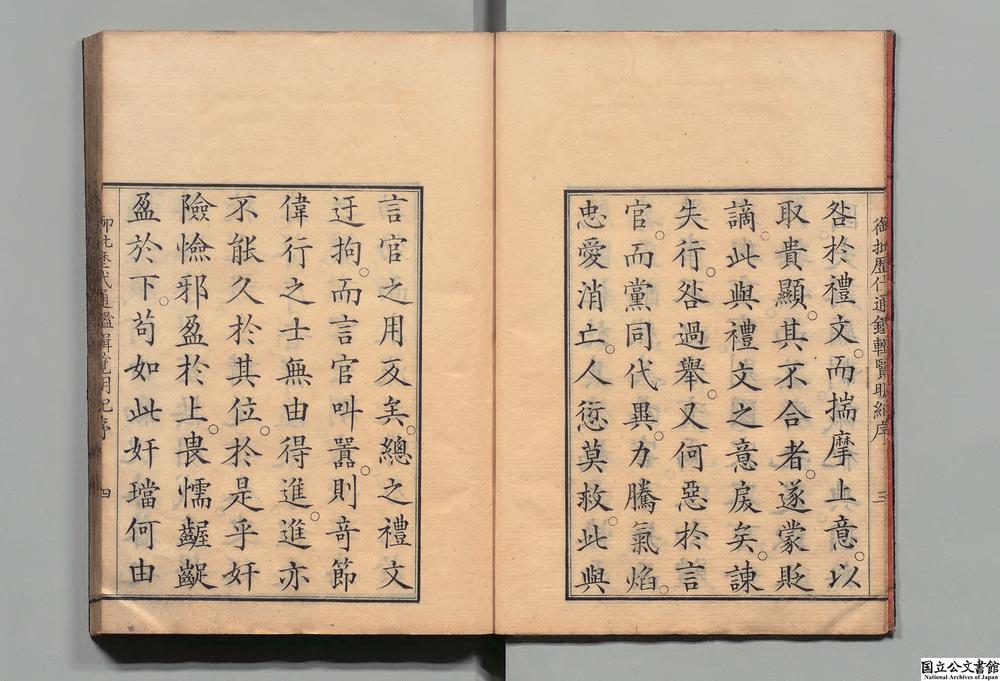 咎於禮文。而揣摩上意。以
取貴顯。其不合者。遂蒙貶
謫。此與禮文之意戾矣。諫
失行。咎過舉。又何惡於言
官。而黨同代異。力騰氣焰。
忠愛消亡。人愆莫救。此與
御批歷代通鑑輯覽明紀序
三
言官之用反矣。總之禮文
迂拘。而言官叫囂。則奇節
偉行之士無由得進。進亦
不能久於其位。於是乎奸
險憸邪盈於上。畏懦齷齪
盈於下。苟如此奸璫何由
御批歷代通鑑輯覽明紀序
四
国立公文書館
National Archives of Japan